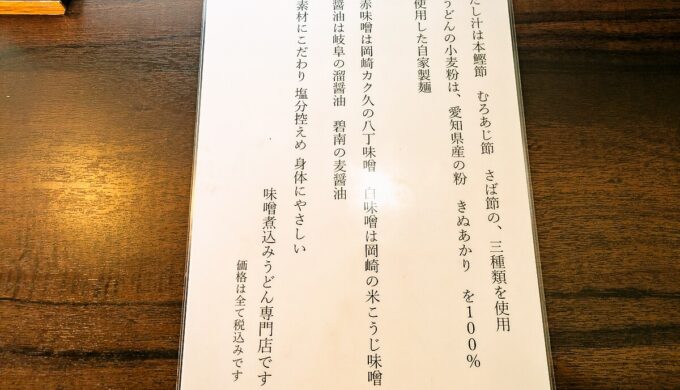 だし汁は本鰹節　むろあじ節　さば節の、三種類を使用
うどんの小麦粉は、愛知県産の粉　きぬあかり　を100％
使用した自家製麺
赤味噌は岡崎カク久の八丁味噌　白味噌は岡崎の米こうじ味噌
醤油は岐阜の溜醤油　碧南の麦醤油
素材にこだわり 塩分控えめ 身体にやさしい
味噌煮込みうどん専門店です
価格は全て税込みです